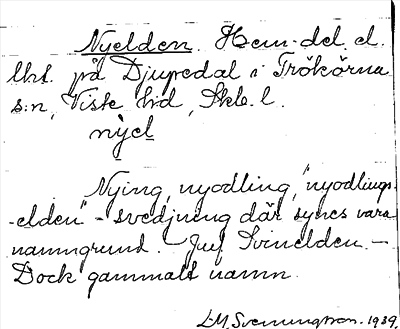 Nyelden. Hem.del el.
lht. på Djupedal i Trökörna
s:n, Viste hd, Skb. l.
nỳel
Nying, nyodling, "nyodlings-
-elden" - svedjning där synes vara
namngrund. Jmf Svinelden. -
Dock gammalt namn.
D.M. Svenungsson. 1939.